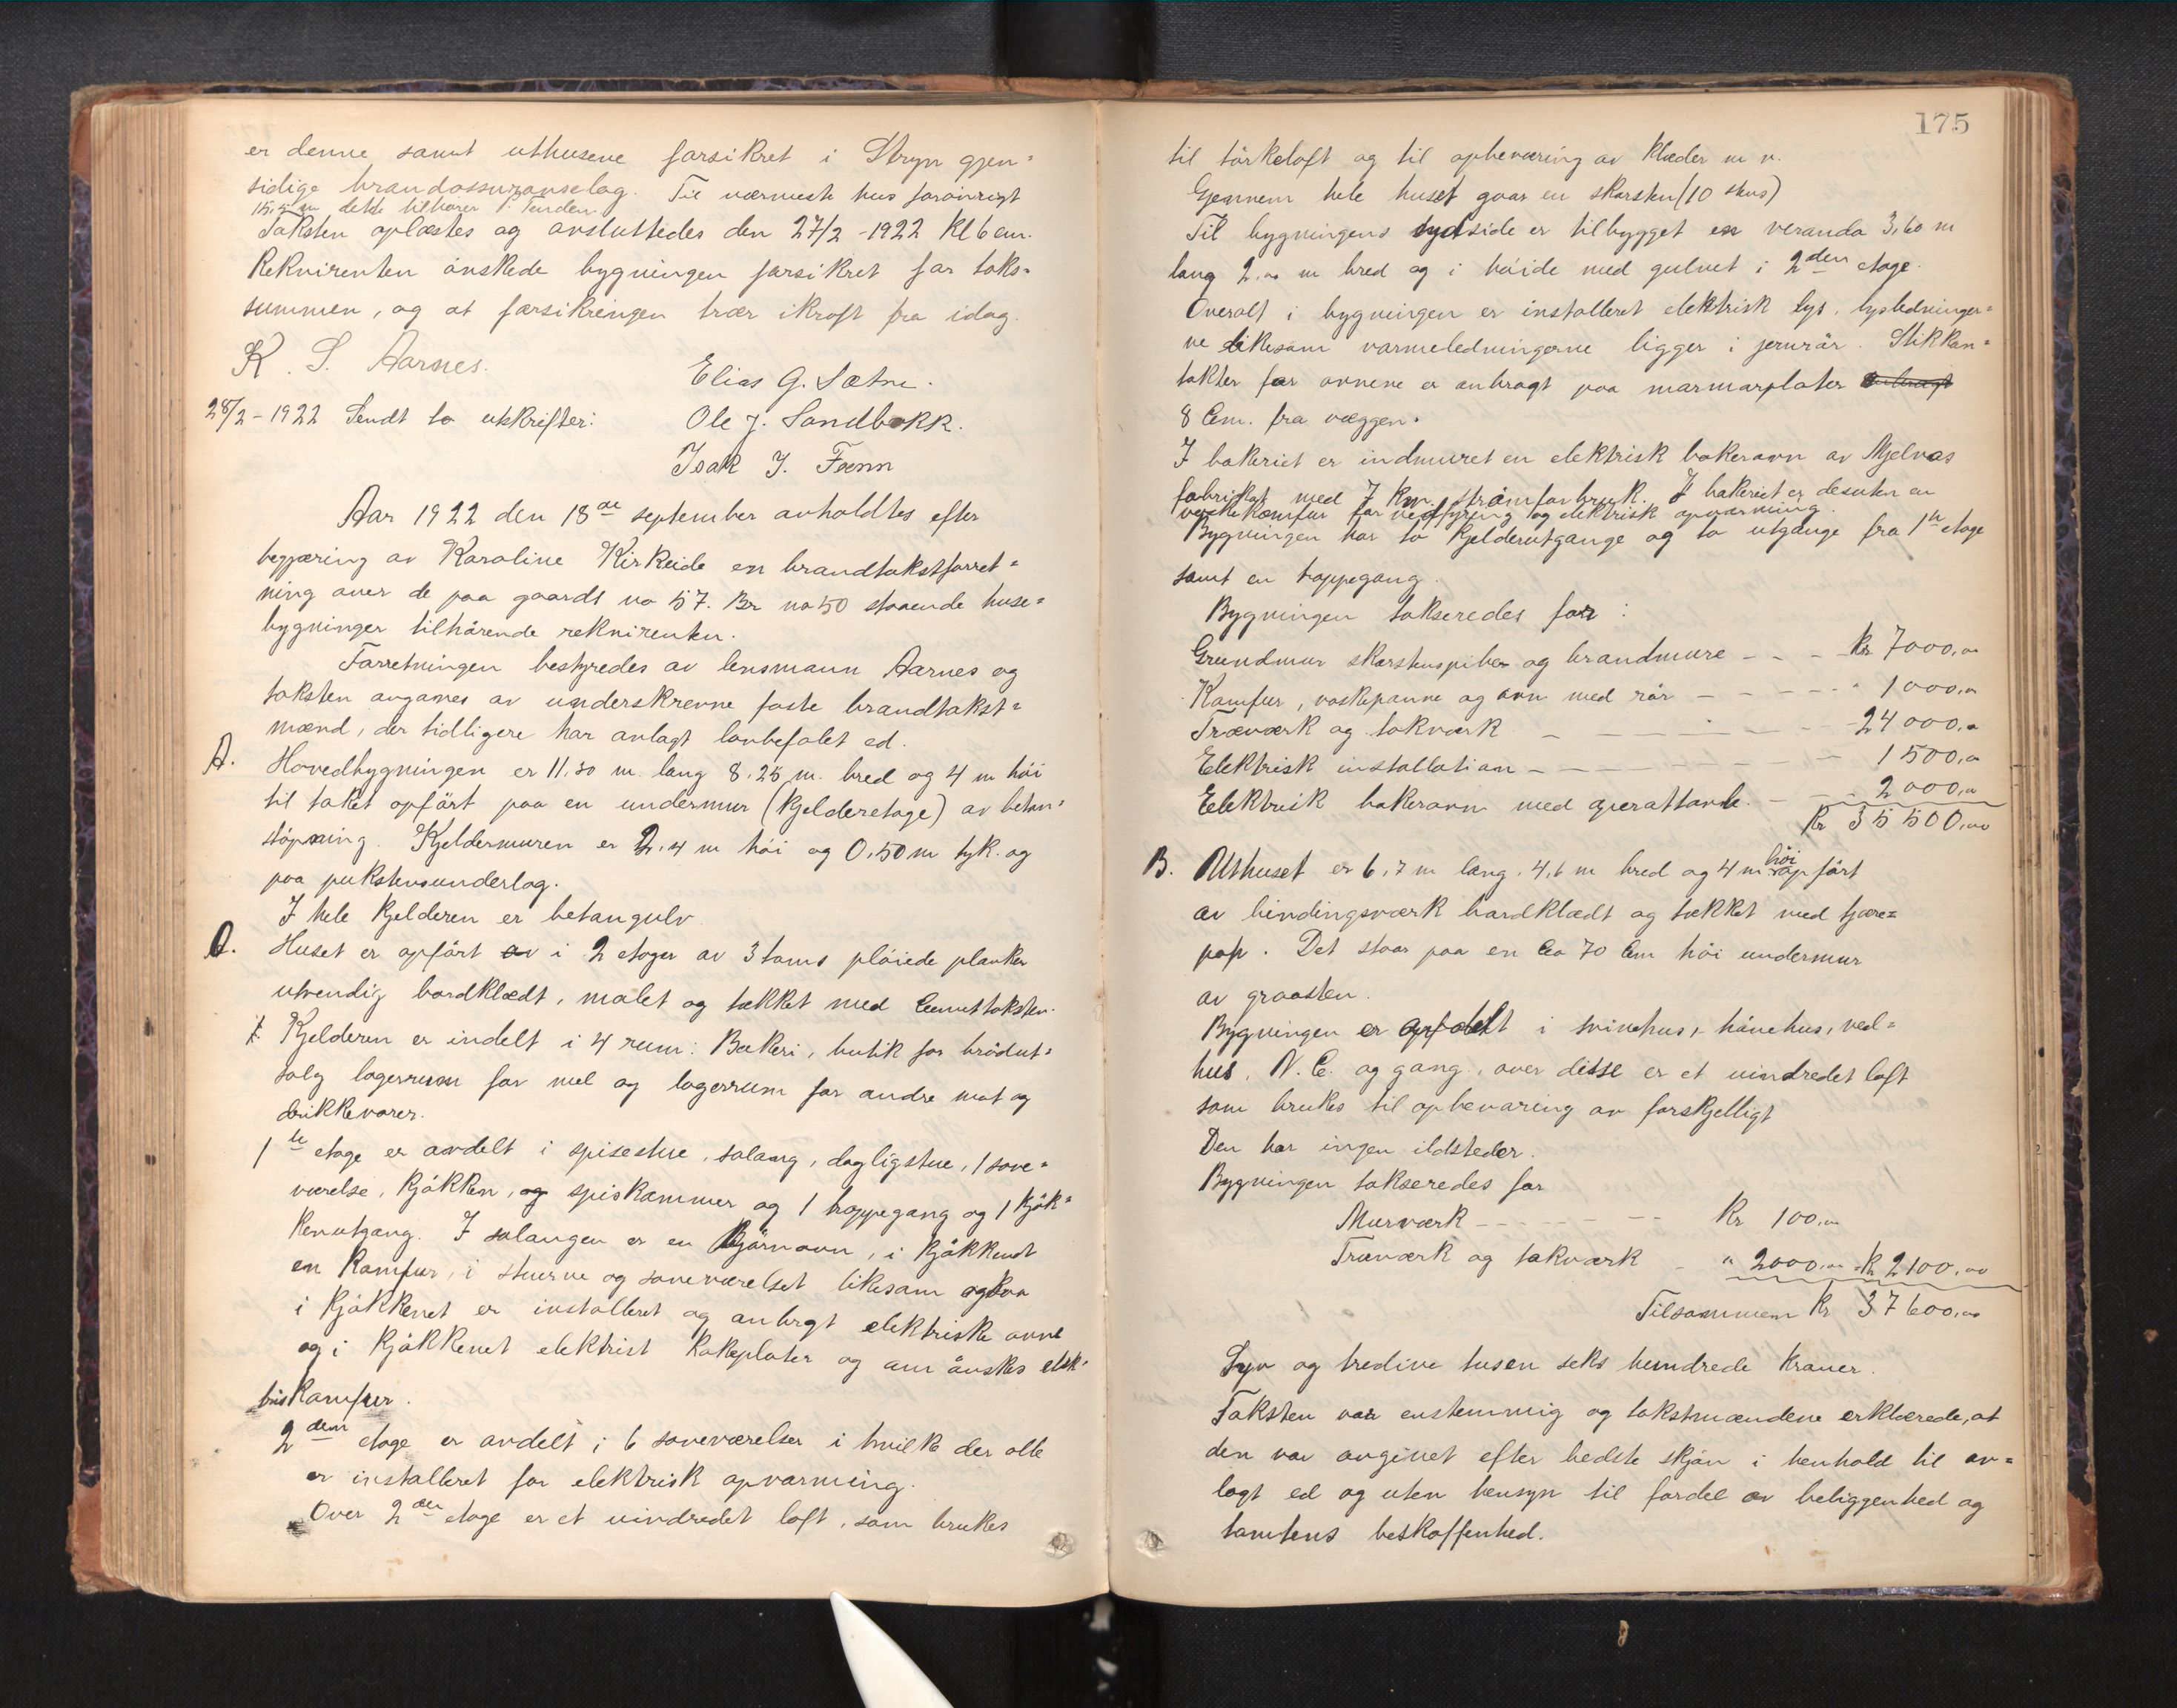 er denne samt uthusene forsikret i Stryn gjen=
sidige brandassuranselag. Til nærmeste hus forøvrigt
15,5 m dette tilhører P. Tenden.
Taksten oplæstes og avsluttedes den 27/2 - 1922 Kl 6 em.
Rekvirenten ønskede bygningen forsikret for taks=
summen, og at forsikringen trær ikraft fra idag.
K. S. Aarnes.
Elias G. Sætre.
28/2 - 1922 Sendt to utskrifter:
Ole J. Sandbakk.
Isak J.
Aar 1922 den 18de september avholdtes efter
begjæring av Karoline Kirkeide en brandtakstforret=
ning over de paa gaards no 57. Br no 50 staaende huse=
bygninger tilhørende rekvirenten.
Forretningen bestyredes av lensmann Aarnes og
taksten avgaves av underskrevne faste brandtakst=
mænd, der tidligere har avlagt lovbefalet ed.
A. Hovedbygningen er 11.30 m lang 8.25 m. bred og 4 m høi
til taket opført paa en undermur (Kjelderetage) av beton=
støpning. Kjeldermuren er 2.4 m høi og 0.50 m tyk. og
paa pukstensunderlag.
I hele Kjelderen er betongulv
Huset er opført av i 2 etager av 3 toms pløiede planker
utvendig bordklædt, malet og tækket med Cementtaksten.
Kjelderen er indelt i 4 rum: Bakeri, butik for brødut=
salg lagerrum for mel og lagerrum for andre mat og
drikkevarer.
1ste etage er avdelt i spisestue, salong, dagligstue, 1 sove=
værelse, Kjøkken, og spiskammer og 1 trappegang og 1 Kjøk=
kenutgang. I salongen er en Kjørnovn, i Kjøkkenet
en Komfur, i stuerne og soveværelset likesom ogsaa
i Kjøkkenet er installeret og anbragt elektriske ovne
og i Kjøkkenet elektrist Kokeplater og om ønskes elek=
trisKomfur.
2den etage er avdelt i 6 soveværelser i hvilke der alle
er installeret for elektrisk opvarming.
Over 2den etage er et uindredet loft, som brukes
175
til tørkeloft og til opbevaring av Klæder m v.
Gjennem hele huset gaar en skorsten (10 skus)
Til bygningens sydside er tilbygget en veranda 3,60 m
lang 2.00 m bred og i høide med gulvet i 2den etage.
Overalt i bygningen er installeret elektrisk lys, lysledninger=
ne likesom varmeledningerne ligger i jernrør. Stikkon=
takter for ovnene er anbragt paa marmorplater anbragt
8 Cm. fra væggen.
I bakeriet er indmuret en elektrisk bakerovn av Mjelvas
fabrikat med 7 Kw. strømforbruk. I bakeriet er desuten en
vaskekomfur for vedfyring og elektrisk opvarming.
Bygningen har to Kjelderutgange og to utgange fra 1ste etage
samt en trappegang.
Bygningen takseredes for:
Grundmur skorstenspiber og brandmure - - - Kr 7000,00
Komfur, vaskepanne og ovn med rør - - - - - " 1000,00
Træværk og takværk - - - - - 24000,00
Elektrisk installation - - - - - 1500,00
Elektrisk bakerovn med - - 2000,00
Kr 35500,00
B. Uthuset er 6,7 m lang, 4,6 m bred og 4 m høi opført
av bindingsværk bordklædt og tækket med tjære=
pap. Det staar paa en Ca 70 Cm høi undermur
av graasten.
Bygningen er opdelt i svinehus, hønehus, ved=
hus, V. C. og gang, over disse er et uindredet loft
som brukes til opbevaring av forskjelligt
Den har ingen ildsteder.
Bygningen takseredes for
Murværk - - - - - - Kr 100,00
Træværk og takværk - " 2000,00 - Kr 2100,00
Tilsammen Kr 37600,00
Syv og tredive tusen seks hundrede Kroner.
Taksten var enstemmig og takstmændene erklærede, at
den var avgivet efter bedste skjøn i henhold til av=
lagt ed og uten hensyn til fordel av beliggenhed og
tomtens beskaffenhed.